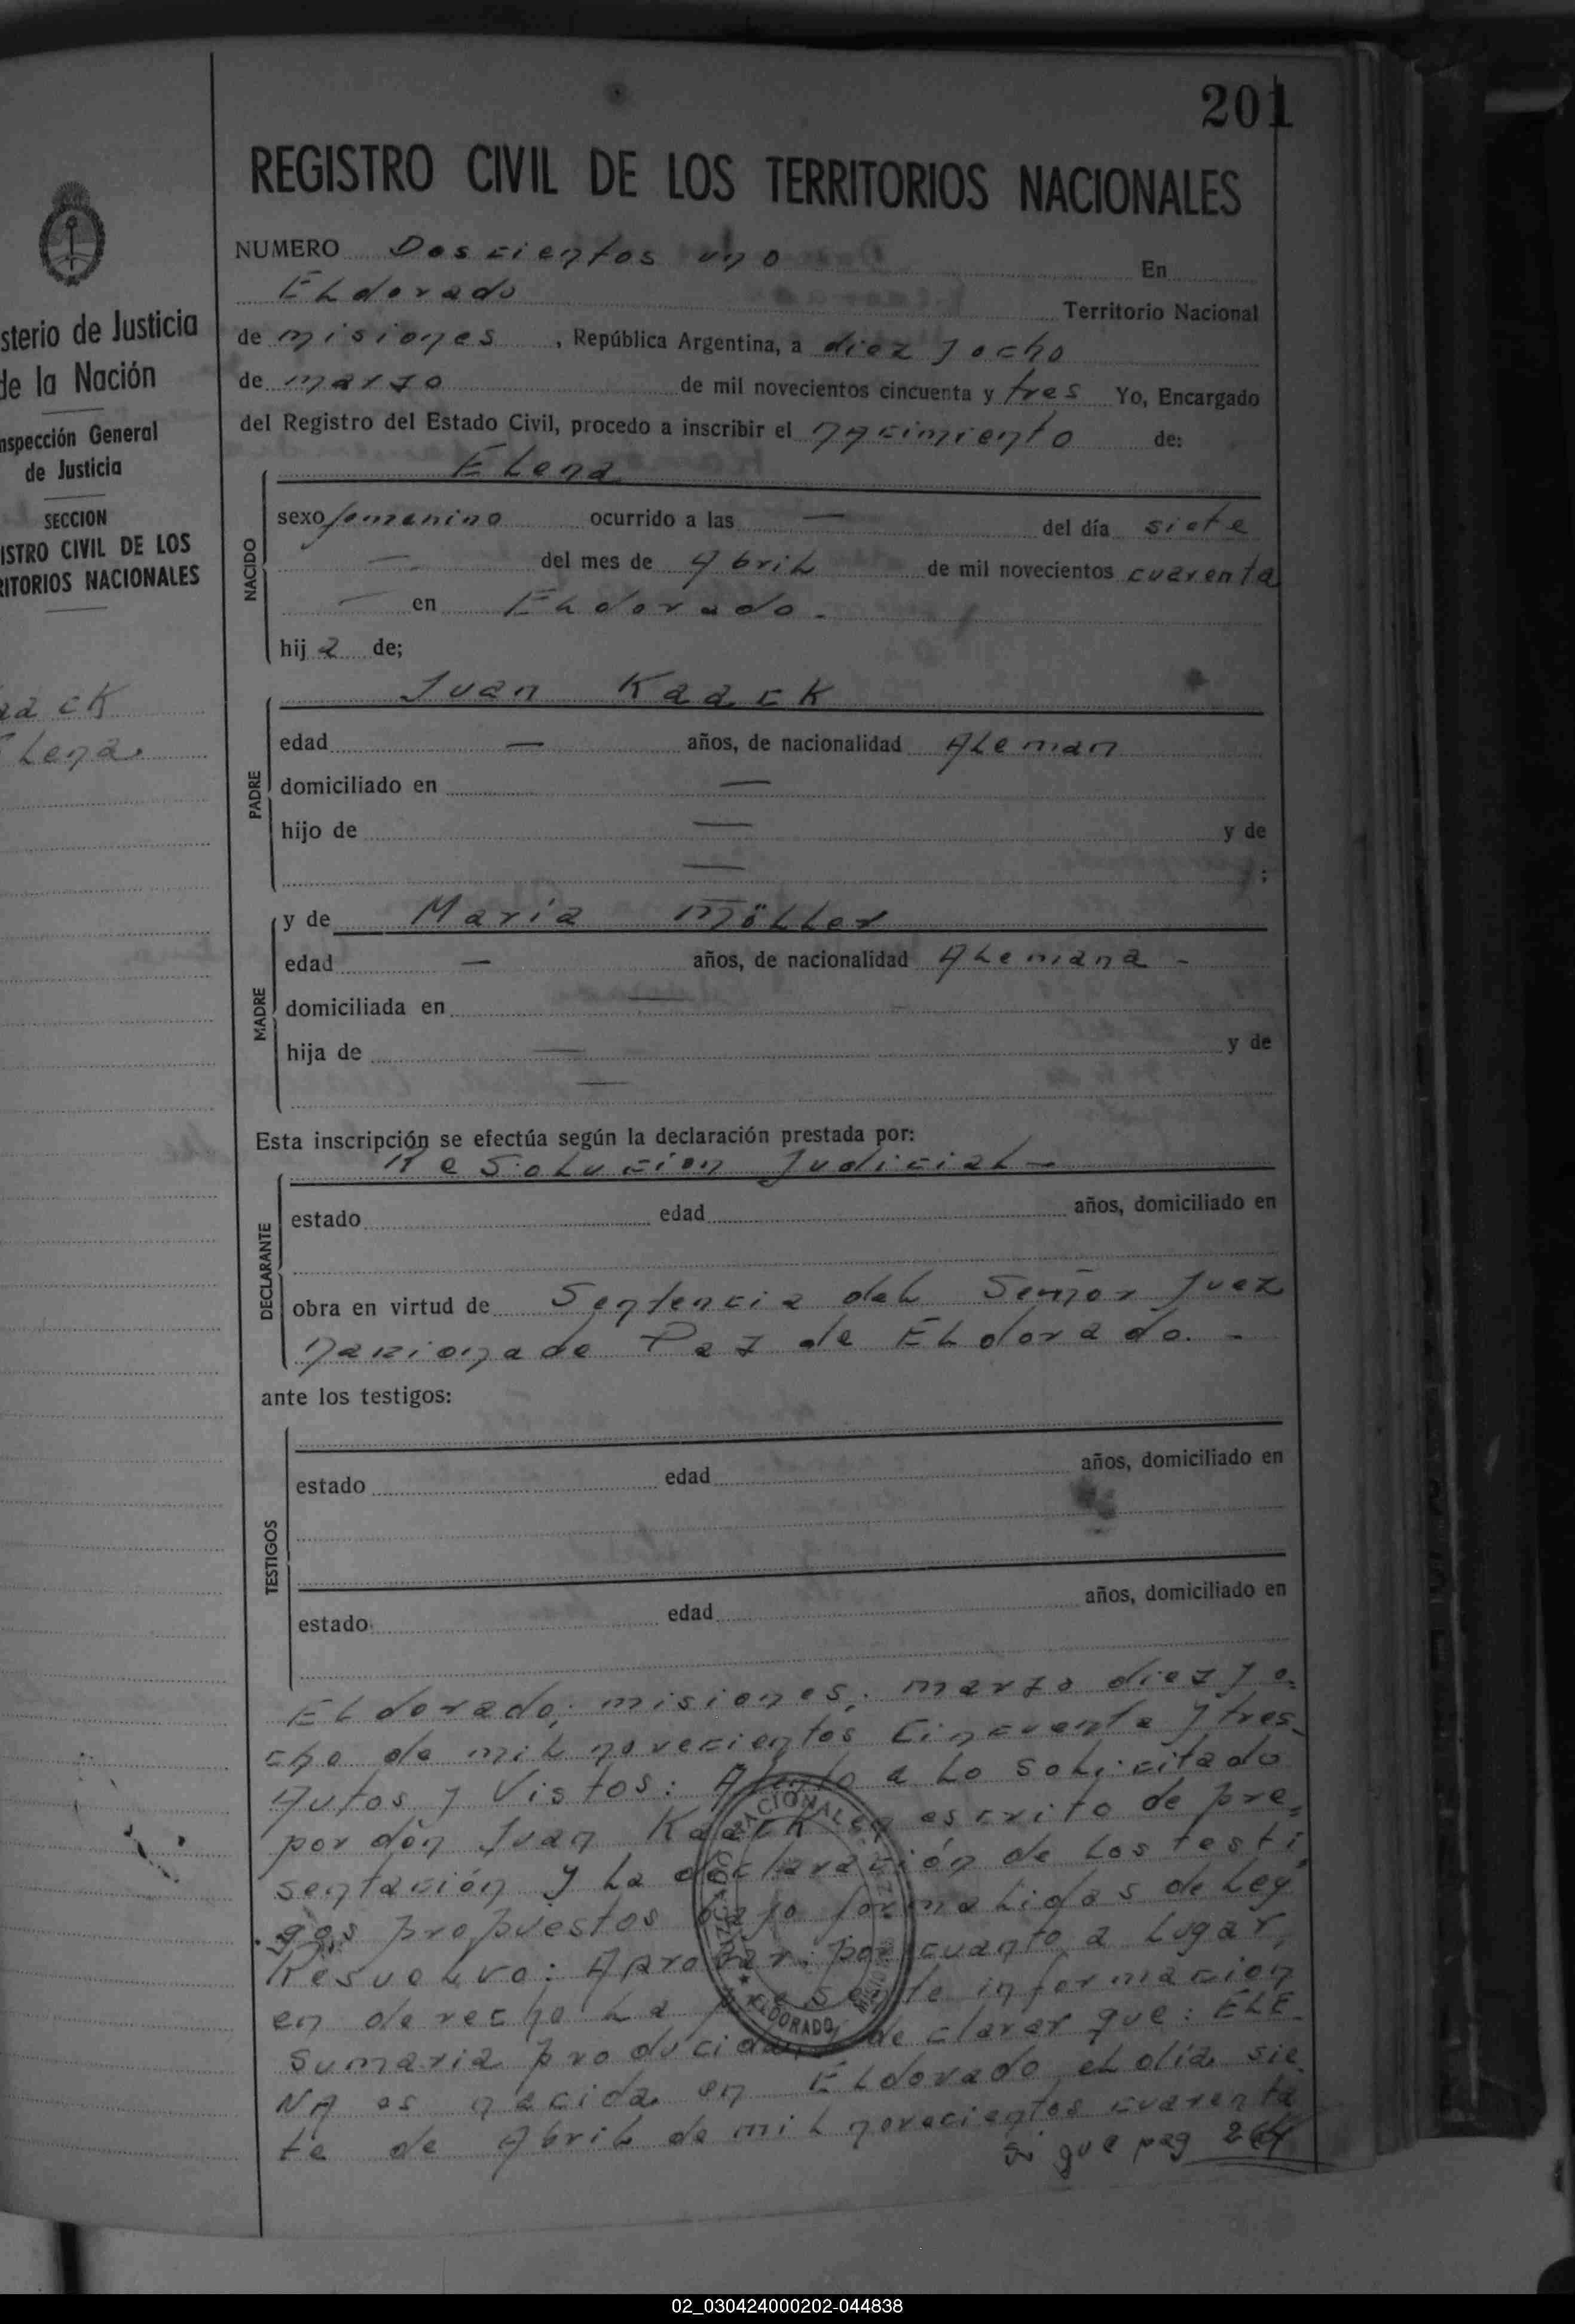 201
REGISTRO CIVIL DE LOS TERRITORIOS NACIONALES
sterio de Justicia
de la Nación
nspección General
de Justicia
SECCION
ISTRO CIVIL DE LOS
RITORIOS NACIONALES
aack
Elena
NUMERO Doscientos uno En
ELdorado Territorio Nacional
de misiones, República Argentina, a diez y ocho
de marzo de mil novecientos cincuenta y tres Yo, Encargado
del Registro del Estado Civil, procedo a inscribir el nacimiento de:
NACIDO
ELena
sexo femenino ocurrido a las — del día siete
— del mes de Abril de mil novecientos cuarenta
— en ELdorado.
hija de;
PADRE
Juan Kaack
edad — años, de nacionalidad ALeman
domiciliado en —
hijo de — y de
— ;
MADRE
y de María Möller
edad — años, de nacionalidad ALemana -
domiciliada en —
hija de — y de
—
Esta inscripción se efectúa según la declaración prestada por:
DECLARANTE
Resolucion Judicial -
estado edad años, domiciliado en
obra en virtud de Sentencia del Señor Juez
Nacional de Paz de ELdorado. -
ante los testigos:
TESTIGOS
estado edad años, domiciliado en
estado edad años, domiciliado en
ELdorado, misiones, marzo diez y o=
cho de mil novecientos cincuenta y tres-
Autos y Vistos: Atento a lo solicitado
por don Juan Kaack en escrito de pre=
sentación y la declaración de los testi
gos propuestos bajo formalidas de Ley
Resuelvo: Aprobar: por cuanto a lugar,
en derecho la presente informacion
sumaria producida, y declarar que: ELE-
NA es nacida en ELdorado el día sie
te de Abril de mil novecientos cuarenta
sigue pag 264
JUZGADO NACIONAL DE PAZ
ELDORADO
02_030424000202-044838